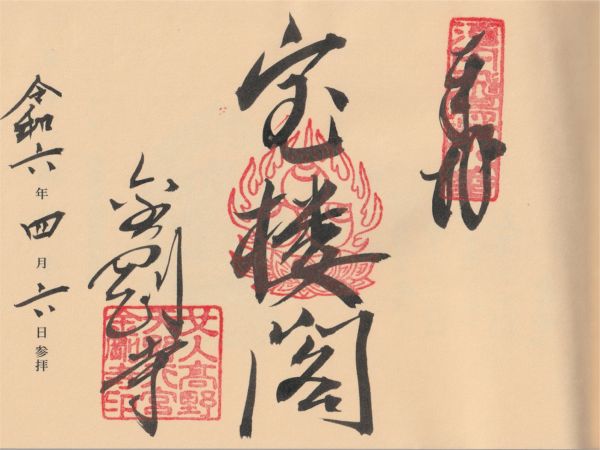 奉拝
宝楼閣
金剛寺
女人高野
天野行宮
金剛寺印
令和六年四月六日参拝